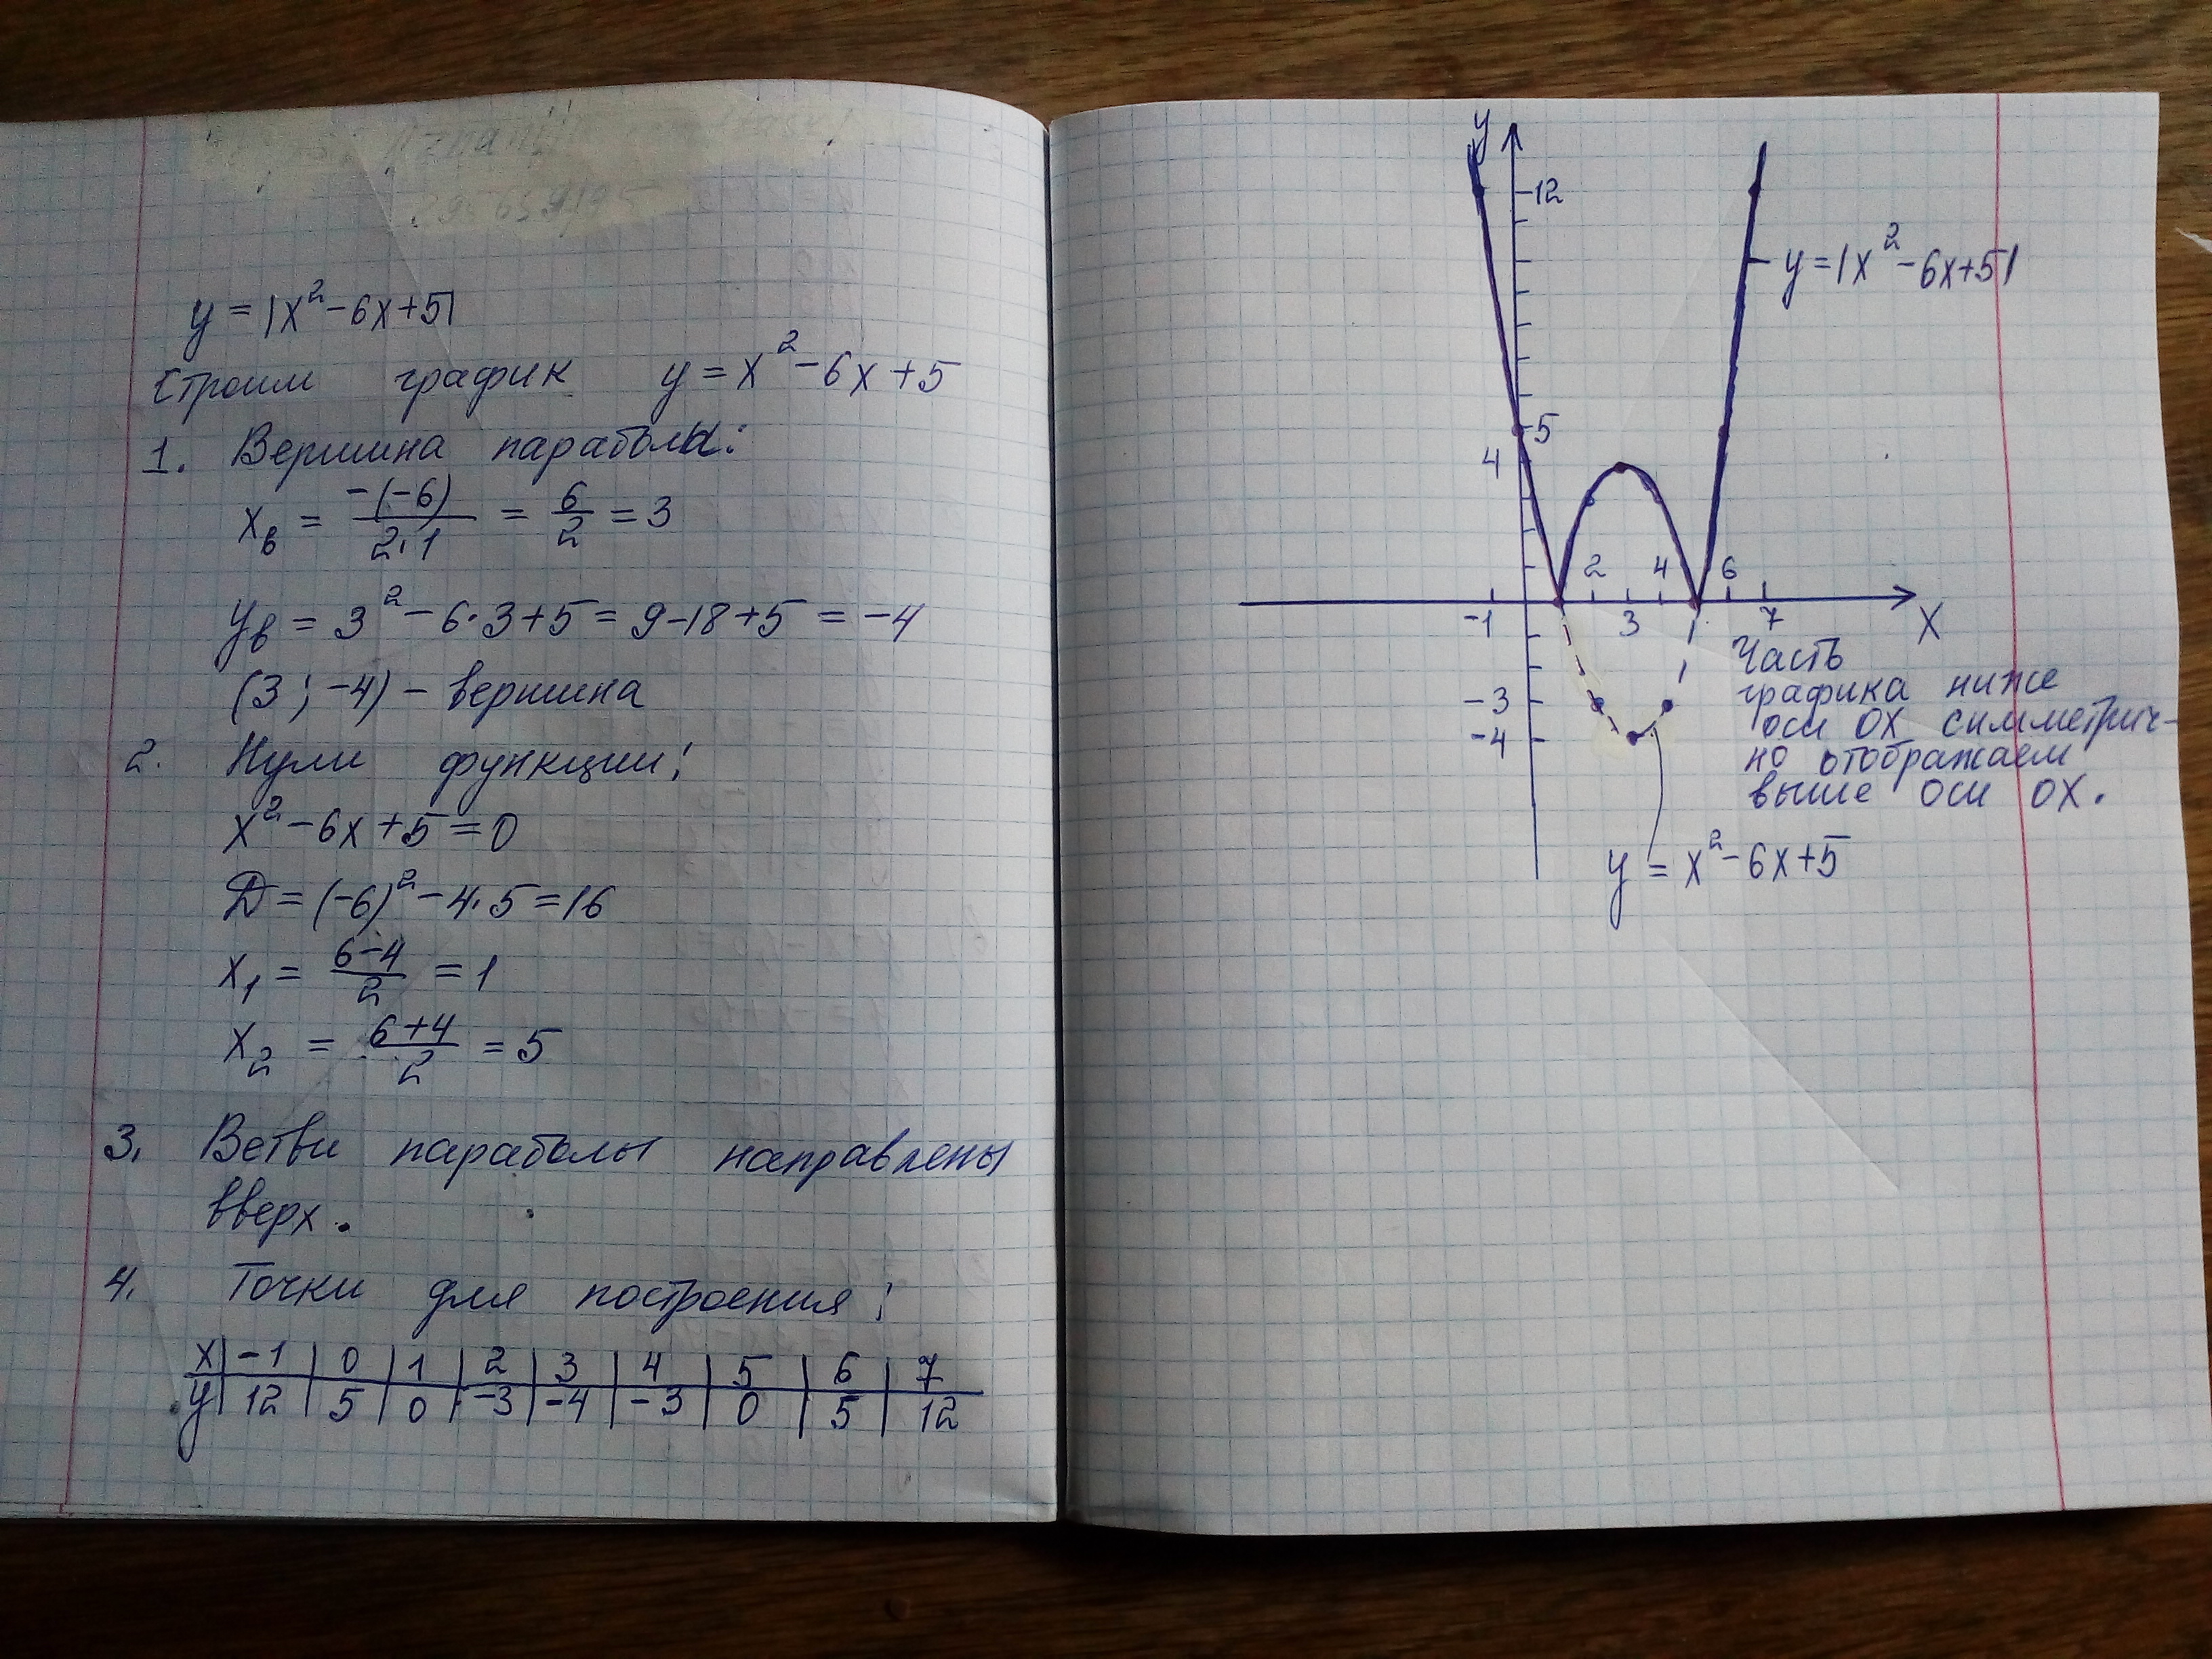 y = |x² - 6x + 5|
Строим график y = x² - 6x + 5
1. Вершина параболы:
xв = -(-6)/2·1 = 6/2 = 3
yв = 3² - 6·3 + 5 = 9 - 18 + 5 = -4
(3; -4) - вершина
2. Нули функции:
x² - 6x + 5 = 0
D = (-6)² - 4·5 = 16
x₁ = 6-4/2 = 1
x₂ = 6+4/2 = 5
3. Ветви параболы направлены
вверх.
4. Точки для построения:
x | -1 | 0 | 1 | 2 | 3 | 4 | 5 | 6 | 7
y | 12 | 5 | 0 | -3 | -4 | -3 | 0 | 5 | 12
y
12
y = |x² - 6x + 5|
5
4
2 4 6
-1 3 7 X
Часть
графика ниже
-3
оси OX симметрич-
-4
но отображаем
выше оси OX.
y = x² - 6x + 5